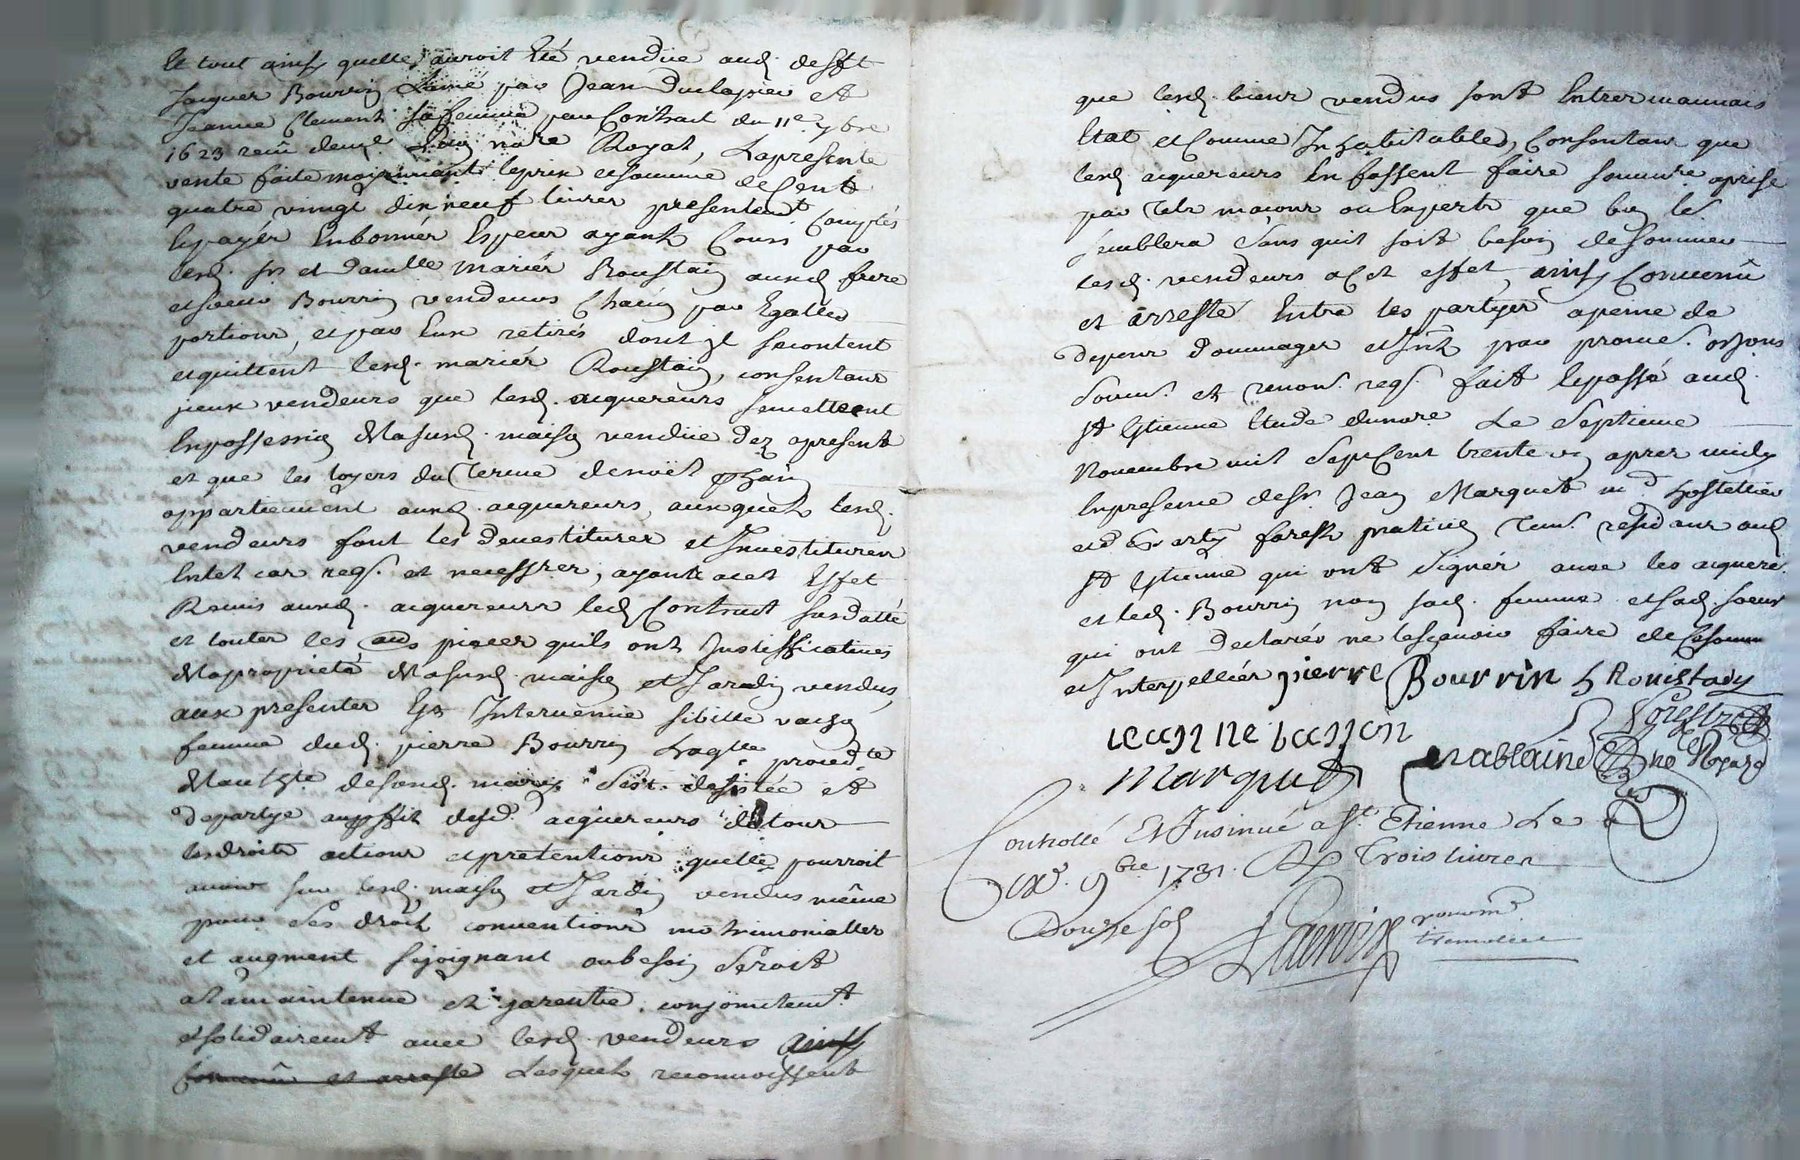 le tout ainsy quelle auroit Eté vendüe aud. defft
Jacques Bourrin L'aine par Jean duclapier et
Jeanne Clement sa femme par Contrat du 11e. 7bre
1623 receu de not.re Royal, La presente
vente faite moyennant le prix et somme de Cent
quatre vingt dix neuf livres presentem.t Comptés
Et payés En bonnes Especes ayant Cours par
lesd. Sr. et damlle mariés Roustain auxd. frere
et soeur Bourrin vendeurs Chacun par Egalles
portions, et par Eux retirés dont jl se contentent
et quittent lesd. mariés Roustain, consentans
jceux vendeurs que lesd. acquereurs se mettent
En possession de la susd. maison vendüe dez apresent
et que les loyers du Terme de noël prochain
appartiennent auxd. acquereurs, auxquels lesd.
vendeurs font les devestitures et Investitures
En tel cas reqs. et necessres, ayant a cet Effet
Remis auxd. acquereurs led. Contract susdatté
et toutes les pieces quils ont Justifficatives
de la proprieté de la susd. maison et Jardin vendus,
aux presentes Est Intervenüe sibille
femme dud. pierre Bourrin Laqlle. proced.te
de l'auth.te de sond. mary s'est desistée et
departye au proffit desd. acquereurs de tous
les droits actions et pretentions quelle pourroit
avoir sur lesd. maison et Jardin vendus même
pour ses droits conventions matrimonialles
et augment se joignant au besoin Seroit
a la maintenüe et garentie conjointem.t
et solidairem.t avec lesd. vendeurs ainsy
Convenu et arresté Lesquels reconnoissent
que lesd. biens vendus sont En tres mauvais
Etat et Comme Inhabitables, Consentans que
lesd. acquereurs En fassent faire sommre. aprise
par tels maçons ou Experts que bon les
semblera Sans quil soit besoin de sommer
lesd. vendeurs a Cet effet, ainsy Convenü
et arresté Entre les partyes a peine de
depens dommages et Int. par promes. oblions
soum. et renon. reqs. fait et passé aud.
St Etienne Etude du nore. Le Septieme
Novembre mil Sept Cent trente un apres midy
En presence de Sr. Jean Marquet md. hostellier
et forest praticien Tem. residans aud.
St Etienne qui ont Signés avec les acquere.
et led. Bourrin non sad. femme et sad. soeur
qui ont declarés ne le scavoir faire de Ce somm
et Interpelliés pierre Bourrin Roustain
ieanne basson forest
marquet
Controllé Et Insinué a St. Etienne Le
9bre 1731. Trois livres
Douze sols